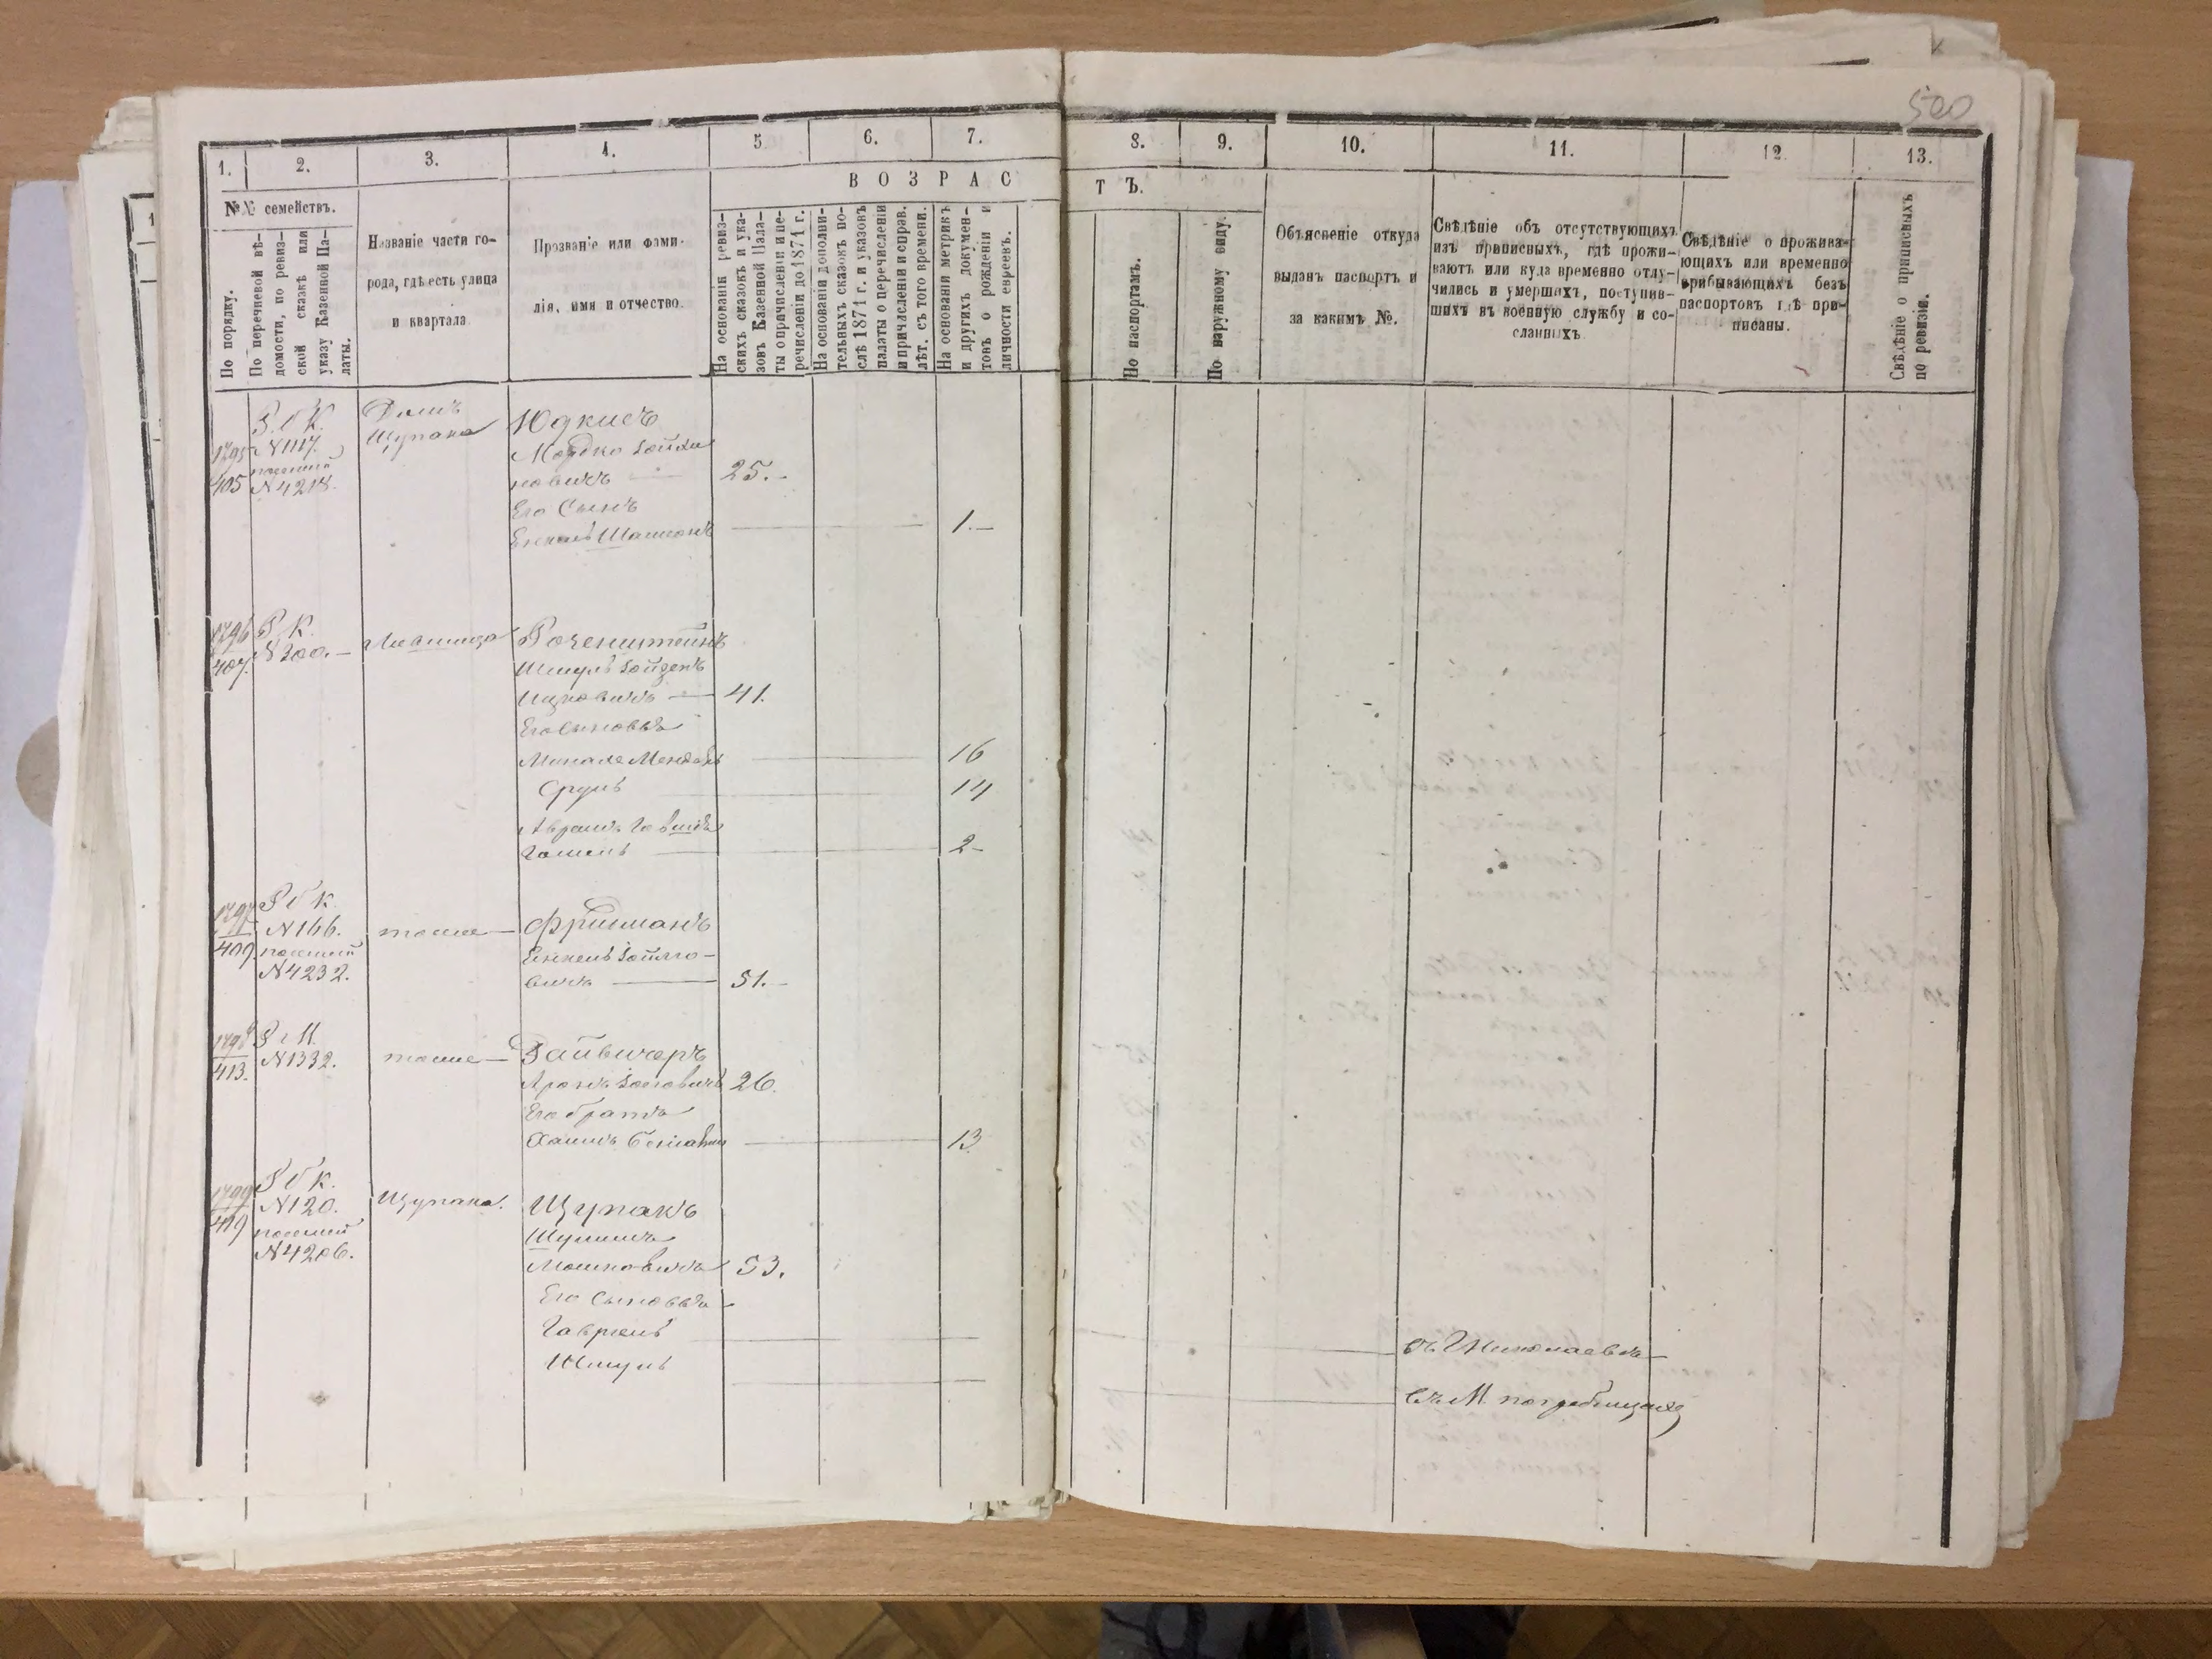 500
1.
2.
3.
4.
5
6.
7.
8.
9.
10.
11.
12.
13.
№№ семействъ.
В О З Р А С Т Ъ.
По порядку.
По перечневой вѣ-
домости, по ревиз-
ской сказкѣ или
указу Казенной Па-
латы.
Названіе части го-
рода, гдѣ есть улица
и квартала
Прозваніе или фами-
лія, имя и отчество.
На основаніи ревиз-
скихъ сказокъ и ука-
зовъ Казенной Пала-
ты о причисленіи и пе-
речисленіи до 1871 г.
На основаніи дополни-
тельныхъ сказокъ по-
слѣ 1871 г. и указовъ
палаты о перечисленіи
и причисленіи и справ.
лѣт. съ того времени.
На основаніи метрикъ
и другихъ докумен-
товъ о рожденіи и
личности евреевъ.
По паспортамъ.
По наружному виду.
Объясненіе откуда
выданъ паспортъ и
за какимъ №.
Свѣдѣніе объ отсутствующихъ
изъ приписныхъ, гдѣ прожи-
ваютъ или куда временно отлу-
чились и умершихъ, поступив-
шихъ въ военную службу и со-
сланныхъ
Свѣдѣніе о прожива-
ющихъ или временно
прибывающихъ безъ
паспортовъ гдѣ при-
писаны.
Свѣдѣніе о приписныхъ
по ревизіи.
1795
405
N 1117.
N 4218.
Домъ
Щупака
Юдкисъ
Мордко
новичъ
25.-
Его Сынъ
1.-
1796
407.
Р. К.
N 300.-
Лившица
Розенштейнъ
Ицковичъ — 41.
Его сыновья
16
Сруль
14
2-
1797
409
N 166.
N 4232.
тоже
Фришманъ
вичъ — 51.-
1798
413.
N 1332.
тоже
Вайнчеръ
26.
Его братъ
13.
1799
419
N 120.
N 4206.
Щупака.
Щупакъ
Мошковичъ 53.
Его сыновья
Гавріель
въ Николаевѣ
Шмуль
въ М. Погребищахъ